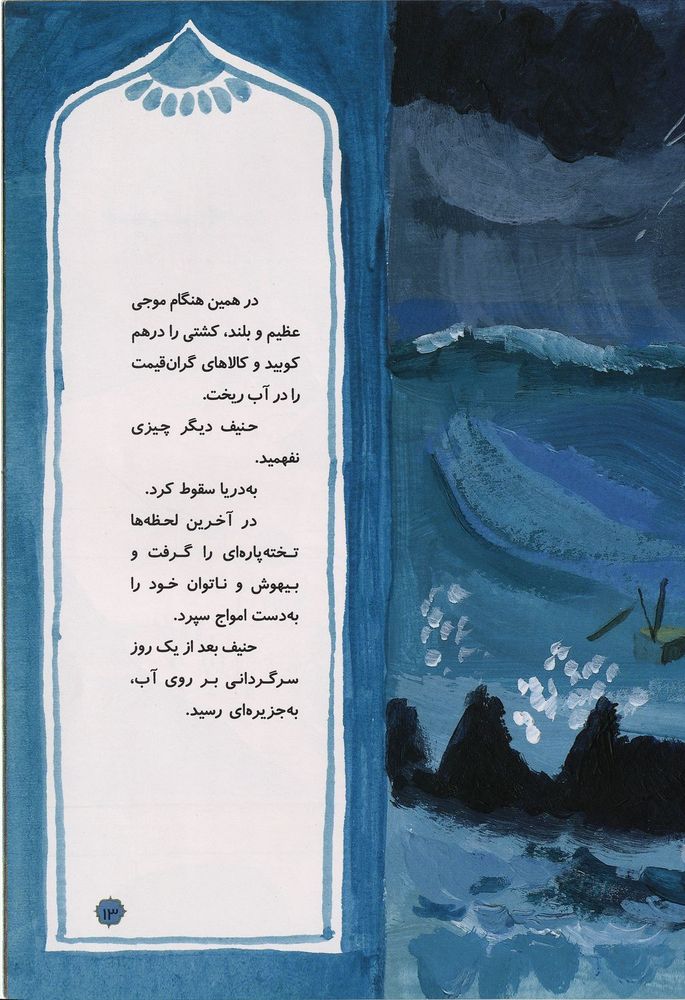 در همین هنگام موجی
عظیم و بلند، کشتی را درهم
کوبید و کالاهای گران‌قیمت
را در آب ریخت.
حنیف دیگر چیزی
نفهمید.
به‌دریا سقوط کرد.
در آخرین لحظه‌ها
تخته‌پاره‌ای را گرفت و
بیهوش و ناتوان خود را
به‌دست امواج سپرد.
حنیف بعد از یک روز
سرگردانی بر روی آب،
به‌جزیره‌ای رسید.
۱۳